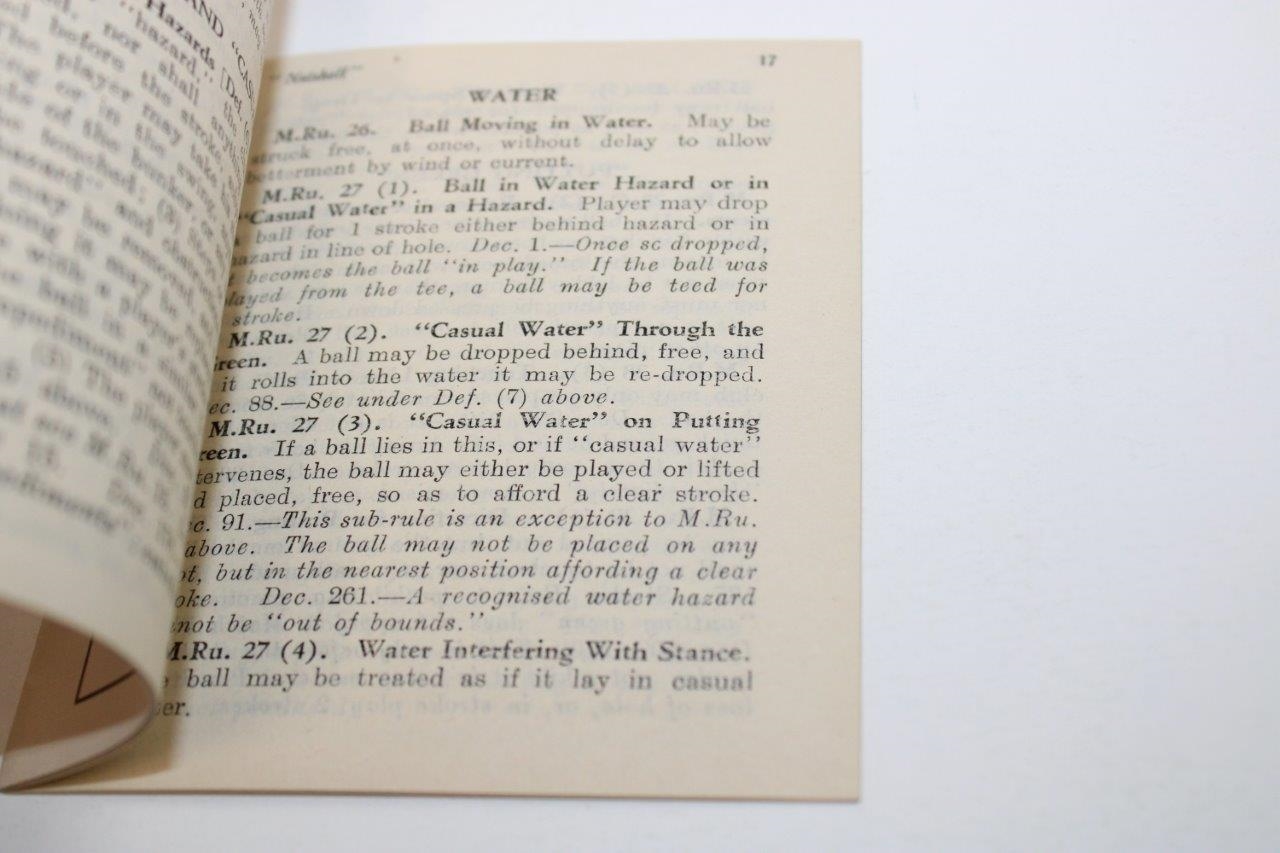 AND "CAS
Hazards [Def. (6
nor shall anything
"hazard," the
before the stroke,
The player may take
or in the
of the bunker, or
touched; (3) Steps
hazard" and
may be removed
may be
with a player's
ball in a
(5) The player
above.
see M.Ru.
"Nutshell"
17
WATER
M.Ru. 26. Ball Moving in Water. May be
struck free, at once, without delay to allow
betterment by wind or current.
M.Ru. 27 (1). Ball in Water Hazard or in
"Casual Water" in a Hazard. Player may drop
ball for 1 stroke either behind hazard or in
hazard in line of hole. Dec. 1.—Once so dropped,
t becomes the ball "in play." If the ball was
played from the tee, a ball may be teed for
stroke.
M.Ru. 27 (2). "Casual Water" Through the
reen. A ball may be dropped behind, free, and
it rolls into the water it may be re-dropped.
ec. 88.—See under Def. (7) above.
M.Ru. 27 (3). "Casual Water" on Putting
reen. If a ball lies in this, or if "casual water"
tervenes, the ball may either be played or lifted
d placed, free, so as to afford a clear stroke.
c. 91.—This sub-rule is an exception to M.Ru.
above. The ball may not be placed on any
ot, but in the nearest position affording a clear
oke. Dec. 261.—A recognised water hazard
not be "out of bounds."
M.Ru. 27 (4). Water Interfering With Stance.
ball may be treated as if it lay in casual
er.